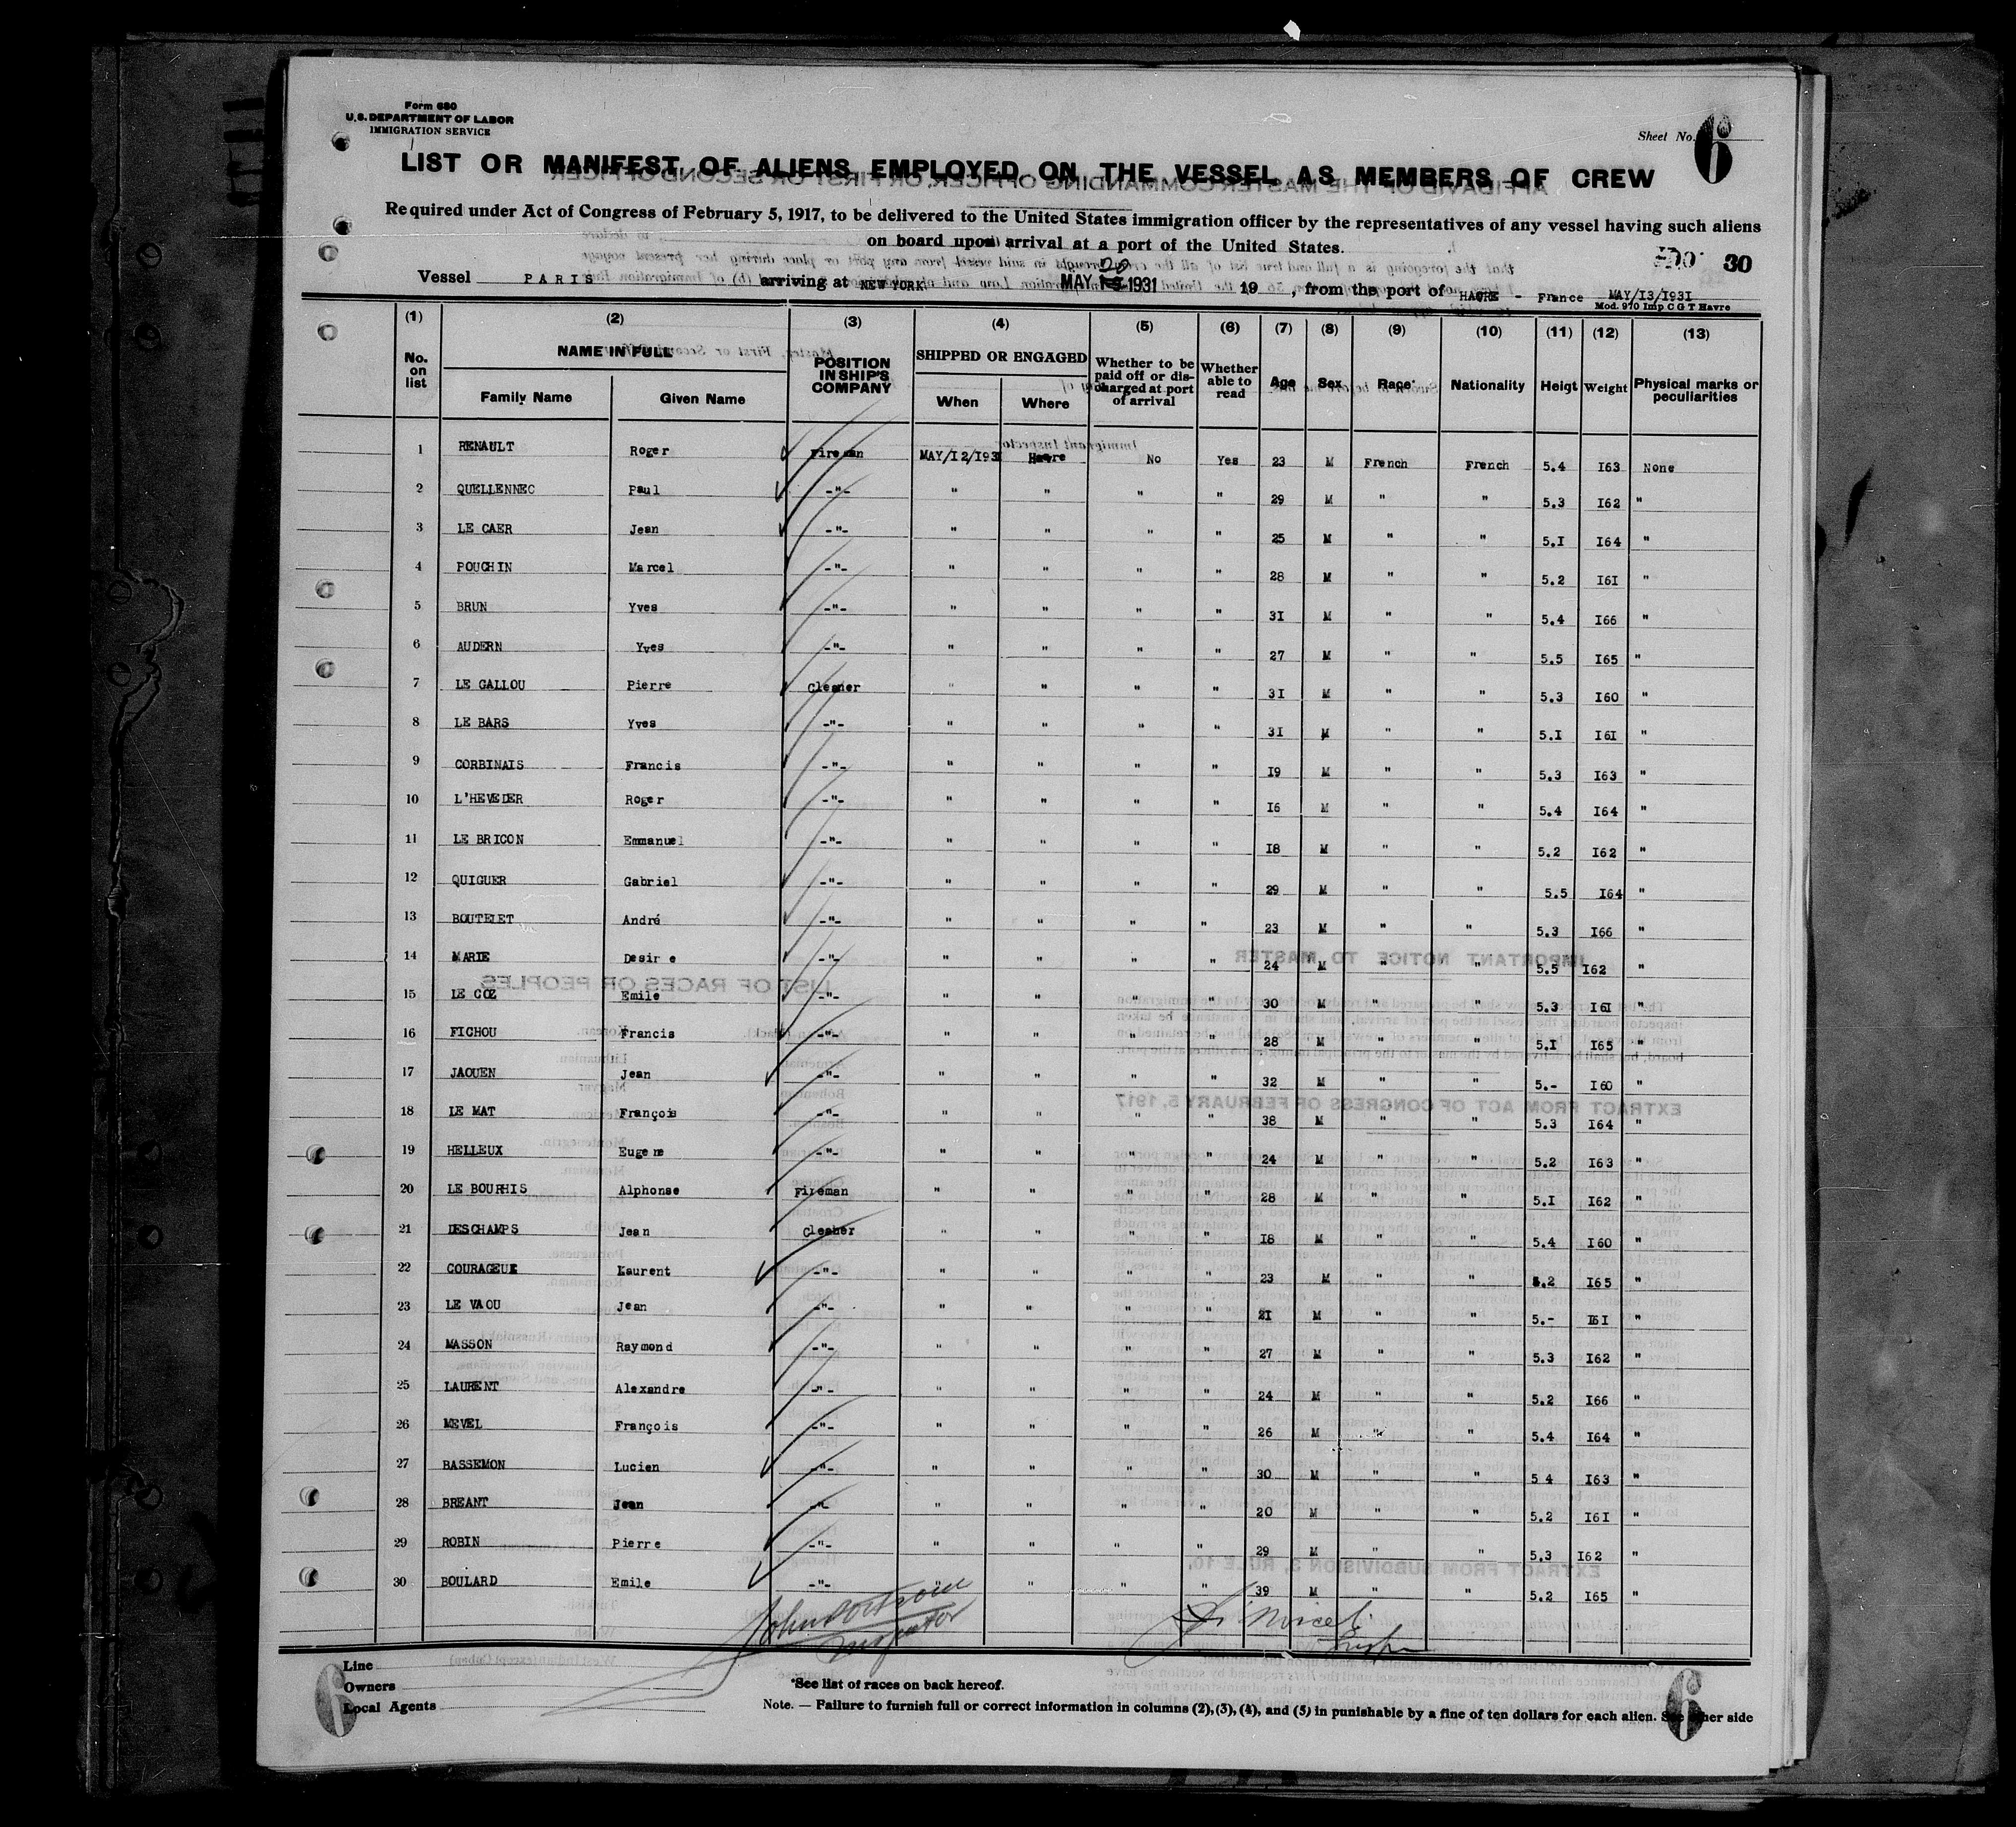 Form 680
U.S. DEPARTMENT OF LABOR
IMMIGRATION SERVICE
Sheet No. 6
LIST OR MANIFEST OF ALIENS EMPLOYED ON THE VESSEL AS MEMBERS OF CREW
Required under Act of Congress of February 5, 1917, to be delivered to the United States immigration officer by the representatives of any vessel having such aliens
on board upon arrival at a port of the United States.
30
Vessel PARIS arriving at NEW YORK MAY 20 1931 19 , from the port of HAVRE - France MAY/I3/I93I
Mod. 970 Imp C G T Havre
(1) (2) (3) (4) (5) (6) (7) (8) (9) (10) (11) (12) (13)
No. on list NAME IN FULL Family Name Given Name POSITION IN SHIP'S COMPANY SHIPPED OR ENGAGED When Where Whether to be paid off or discharged at port of arrival Whether able to read Age Sex Race* Nationality Heigt Weight Physical marks or peculiarities
1 RENAULT Roger Fireman MAY/I2/I93I Havre No Yes 23 M French French 5.4 I63 None
2 QUELLENNEC Paul -"- " " " " 29 M " " 5.3 I62 "
3 LE CAER Jean -"- " " " " 25 M " " 5.I I64 "
4 POUCHIN Marcel -"- " " " " 28 M " " 5.2 I6I "
5 BRUN Yves -"- " " " " 3I M " " 5.4 I66 "
6 AUDERN Yves -"- " " " " 27 M " " 5.5 I65 "
7 LE GALLOU Pierre Cleaner " " " " 3I M " " 5.3 I60 "
8 LE BARS Yves -"- " " " " 3I M " " 5.I I6I "
9 CORBINAIS Francis -"- " " " " I9 M " " 5.3 I63 "
10 L'HEVEDER Roger -"- " " " " I6 M " " 5.4 I64 "
11 LE BRICON Emmanuel -"- " " " " I8 M " " 5.2 I62 "
12 QUIGUER Gabriel -"- " " " " 29 M " " 5.5 I64 "
13 BOUTELET André -"- " " " " 23 M " " 5.3 I66 "
14 MARIE Desire -"- " " " " 24 M " " 5.5 I62 "
15 LE COZ Emile -"- " " " " 30 M " " 5.3 I6I "
16 FICHOU Francis -"- " " " " 28 M " " 5.I I65 "
17 JAOUEN Jean -"- " " " " 32 M " " 5.- I60 "
18 LE MAT François -"- " " " " 38 M " " 5.3 I64 "
19 HELLEUX Eugene -"- " " " " 24 M " " 5.2 I63 "
20 LE BOURHIS Alphonse Fireman " " " " 28 M " " 5.I I62 "
21 DESCHAMPS Jean Cleaner " " " " I8 M " " 5.4 I60 "
22 COURAGEUX Laurent -"- " " " " 23 M " " 5.2 I65 "
23 LE VAOU Jean -"- " " " " 2I M " " 5.- I6I "
24 MASSON Raymond -"- " " " " 27 M " " 5.3 I62 "
25 LAURENT Alexandre -"- " " " " 24 M " " 5.2 I66 "
26 MEVEL François -"- " " " " 26 M " " 5.4 I64 "
27 BASSEMON Lucien -"- " " " " 30 M " " 5 4 I63 "
28 BREANT Jean -"- " " " " 20 M " " 5.2 I6I "
29 ROBIN Pierre -"- " " " " 29 M " " 5.3 I62 "
30 BOULARD Emile -"- " " " " 39 M " " 5.2 I65 "
Inspector
Line
Owners
Local Agents
*See list of races on back hereof.
Note. — Failure to furnish full or correct information in columns (2),(3),(4), and (5) in punishable by a fine of ten dollars for each alien. See other side
6
6